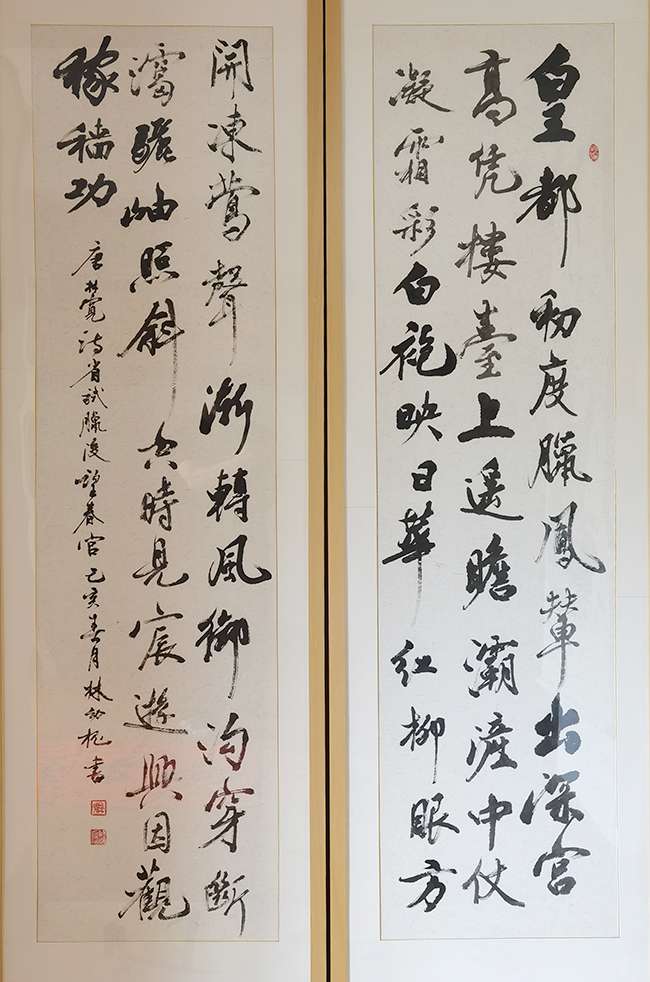 皇都初度臘鳳輦出深宮
高凭樓臺上遥瞻灞滻中仗
凝霜彩白袍映日華紅柳眼方
開凍鶯聲漸轉風御沟穿斷
靄驪岫照斜空時見宸遊興因觀
稼穡功
唐林寬詩省試臘後望春宮己亥春月林書